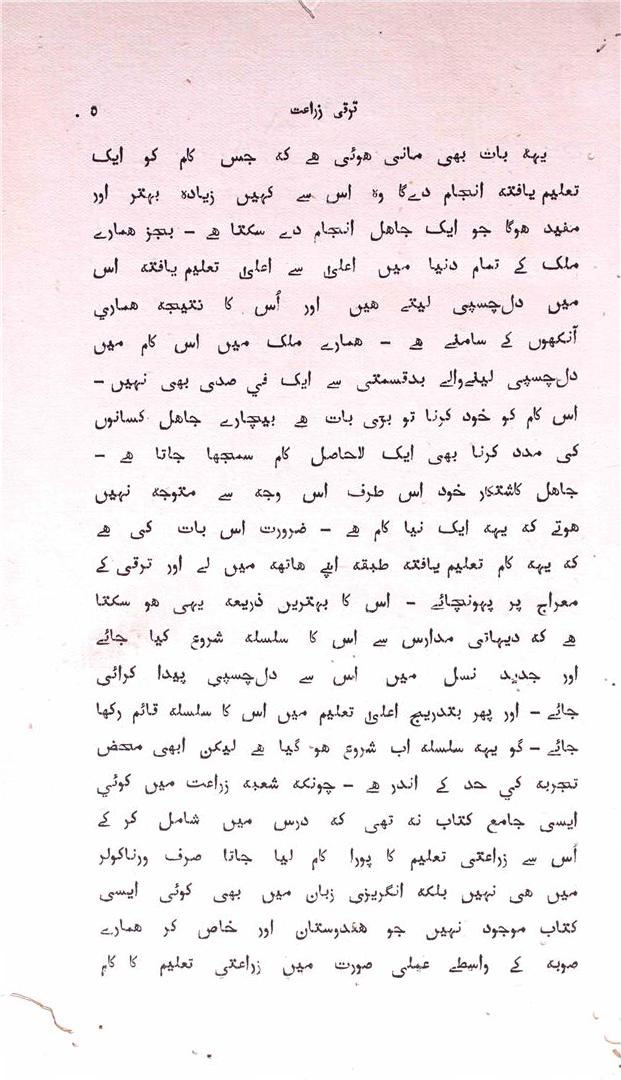 ترقی زراعت ٥
یہہ بات بھی مانی ھوئی ھے کہ جس کام کو ایک
تعلیم یافتہ انجام دےگا وہ اس سے کہیں زیادہ بہتر اور
مفید ھوگا جو ایک جاھل انجام دے سکتا ھے - بجز ھمارے
ملک کے تمام دنیا میں اعلیٰ سے اعلیٰ تعلیم یافتہ اس
میں دلچسپی لیتے ھیں اور اُس کا نتیجہ ھماري
آنکھوں کے سامنے ھے - ھمارے ملک میں اس کام میں
دلچسپی لینےوالے بدقسمتی سے ایک في صدی بھی نہیں -
اس کام کو خود کرنا تو بڑی بات ھے بیچارے جاھل کسانوں
کی مدد کرنا بھی ایک لاحاصل کام سمجھا جاتا ھے -
جاھل کاشتکار خود اس طرف اس وجہ سے متوجہ نہیں
ھوتے کہ یہہ ایک نیا کام ھے - ضرورت اس بات کی ھے
کہ یہہ کام تعلیم یافتہ طبقہ اپنے ھاتھہ میں لے اور ترقی کے
معراج پر پہونچائے - اس کا بہترین ذریعہ یہی ھو سکتا
ھے کہ دیہاتی مدارس سے اس کا سلسلہ شروع کیا جائے
اور جدید نسل میں اس سے دلچسپی پیدا کرائی
جائے - اور پھر بتدریج اعلیٰ تعلیم میں اس کا سلسلہ قائم رکھا
جائے - گو یہہ سلسلہ اب شروع ھو گیا ھے لیکن ابھی محض
تجربہ کي حد کے اندر ھے - چونکہ شعبہ زراعت میں کوئي
ایسی جامع کتاب نہ تھی کہ درس میں شامل کر کے
اُس سے زراعتی تعلیم کا پورا کام لیا جاتا صرف ورناکولر
میں ھی نہیں بلکہ انگریزی زبان میں بھی کوئی ایسی
کتاب موجود نہیں جو ھندوستان اور خاص کر ھمارے
صوبہ کے واسطے عملی صورت میں زراعتی تعلیم کا کام